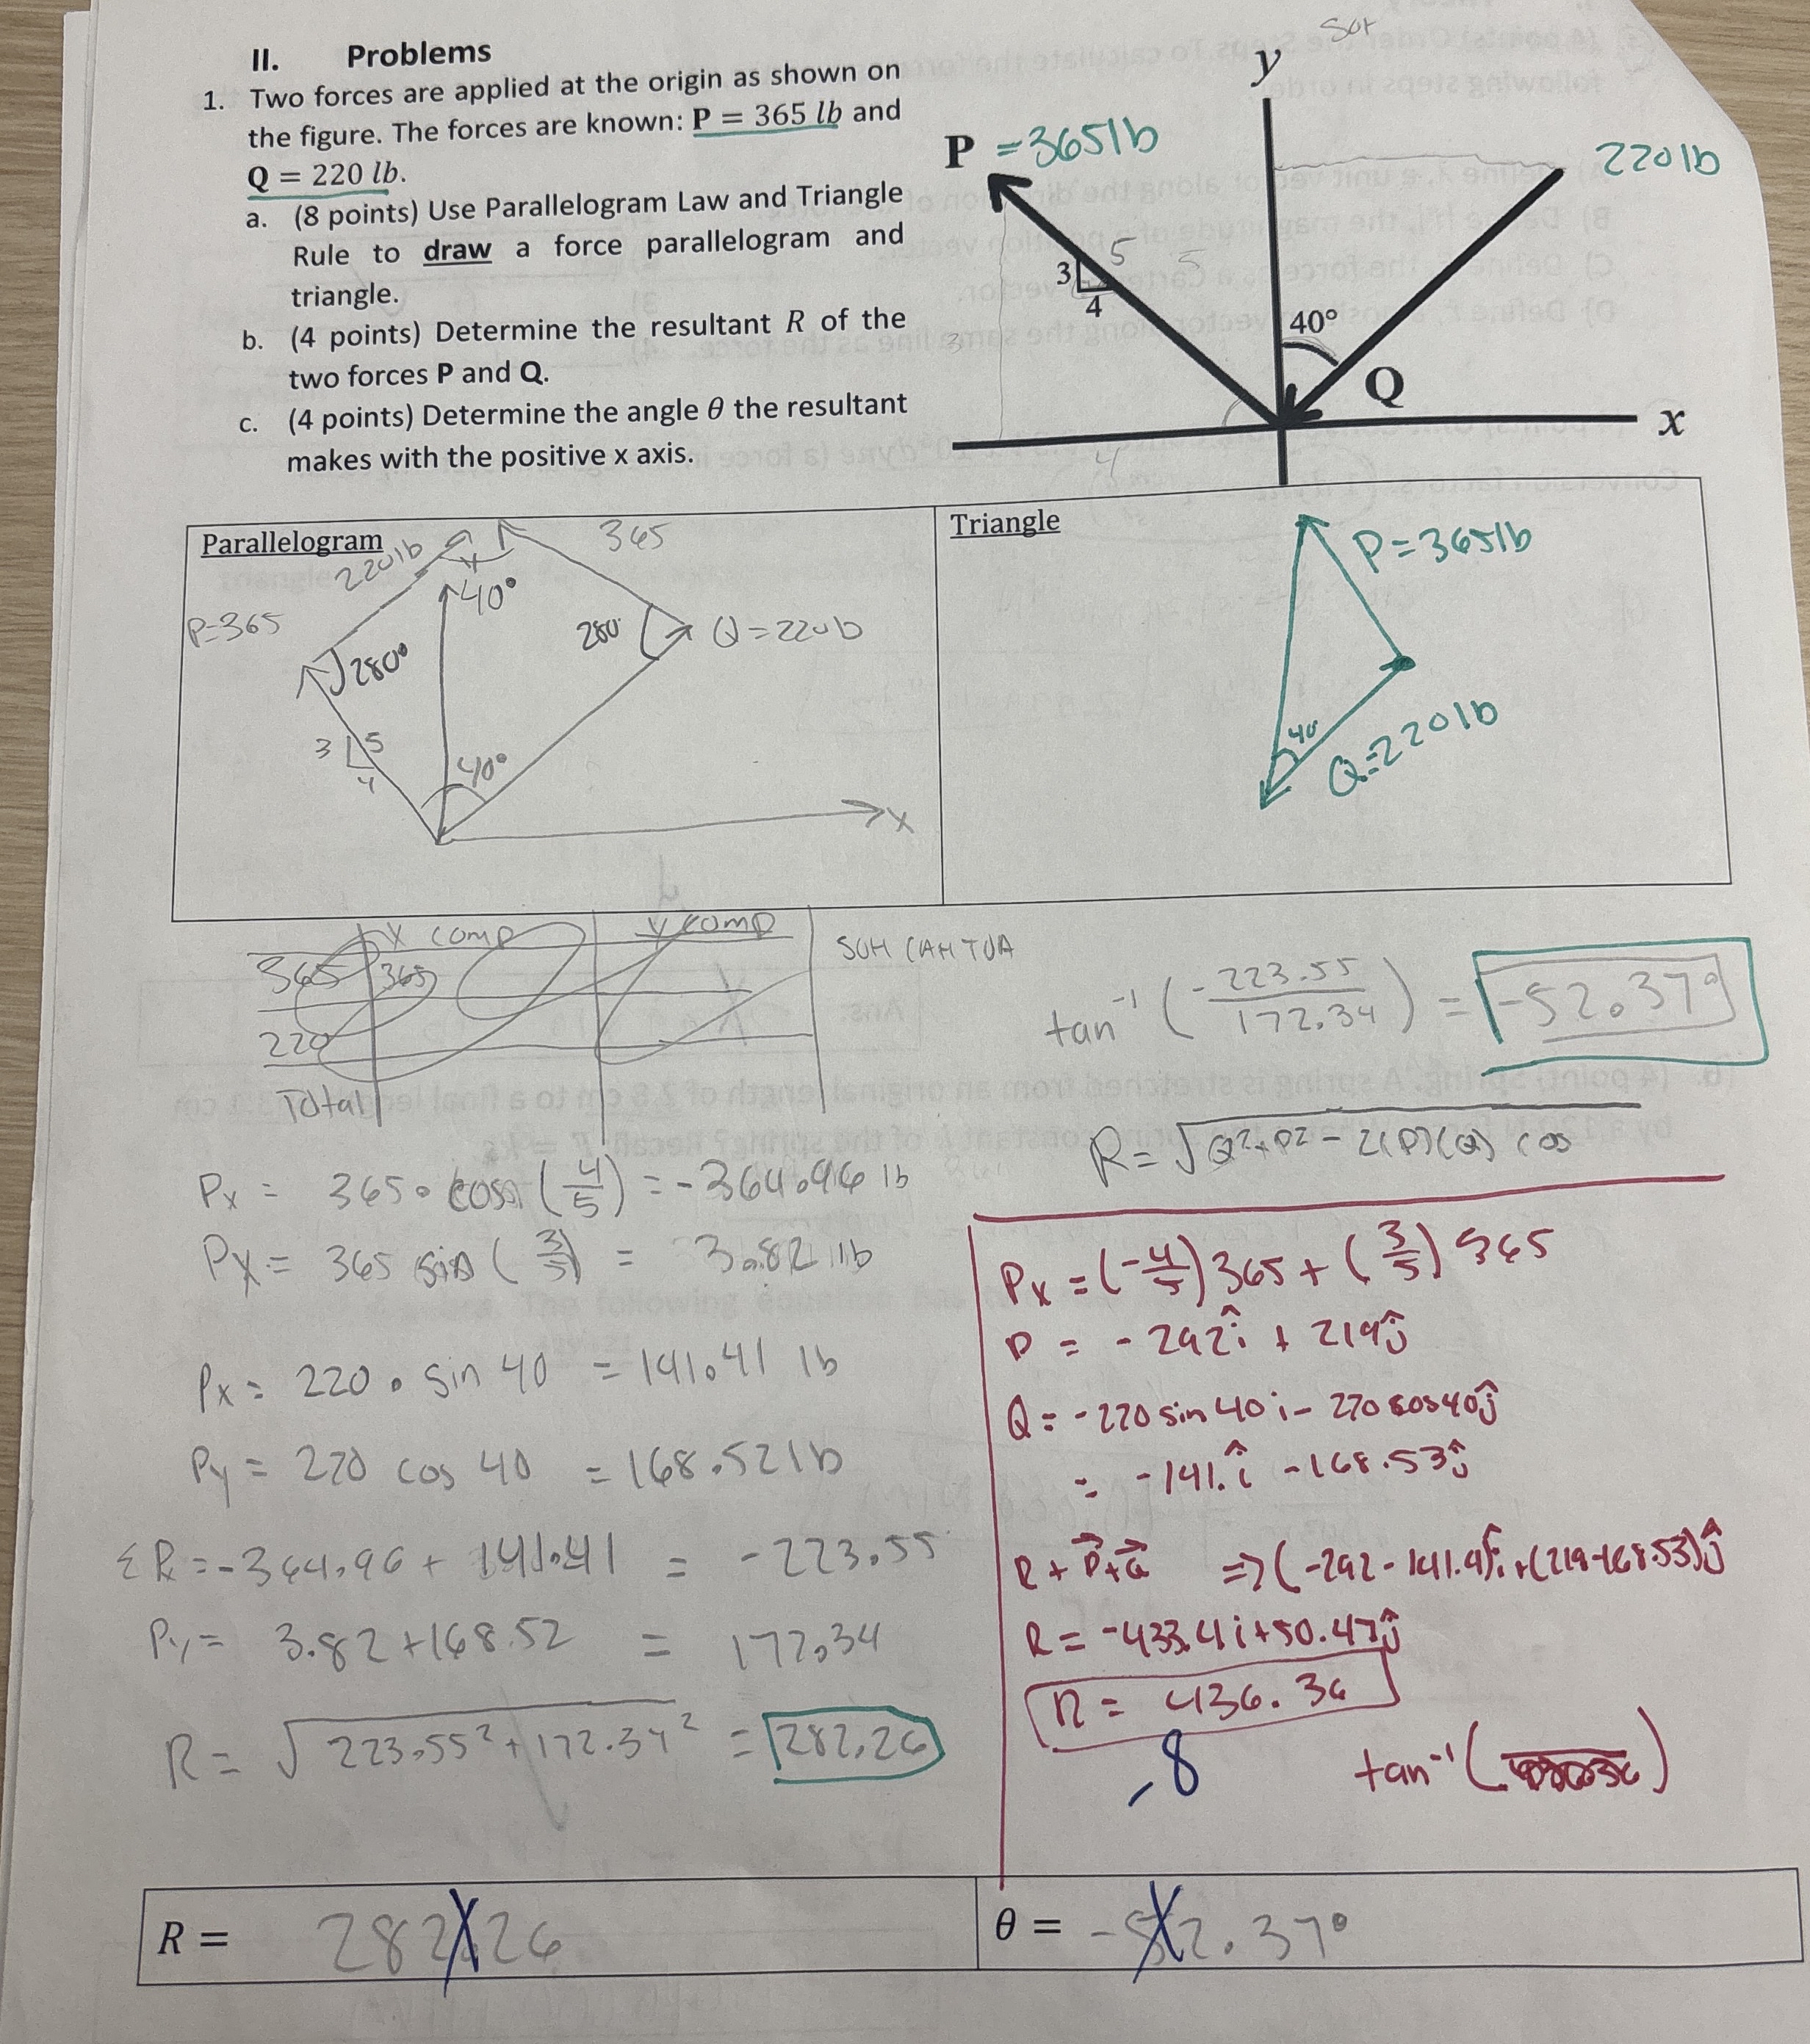 II. Problems
1. Two forces are applied at the origin as shown on
the figure. The forces are known: P = 365 lb and
Q = 220 lb.
a. (8 points) Use Parallelogram Law and Triangle
Rule to draw a force parallelogram and
triangle.
b. (4 points) Determine the resultant R of the
two forces P and Q.
c. (4 points) Determine the angle θ the resultant
makes with the positive x axis.
y
P = 365lb
220lb
3 5 5
4
40°
3
Q
x
4
Parallelogram
220lb
365
P=365
40°
280°
280
Q = 220lb
3 5
4
40°
x
Triangle
P=365lb
40
Q=220lb
x comp y comp
365 365
220
Total
SOH CAH TOA
tan⁻¹ (-223.55/172.34) = -52.37°
R = √Q²+P² - 2(P)(Q) cos
Px = 365 • cos (4/5) = -364.96 lb
Px = 365 sin (3/5) = 3.82 lb
Px = 220 • sin 40 = 141.41 lb
Py = 220 cos 40 = 168.52 lb
ΣR = -364.96 + 141.41 = -223.55
Py = 3.82 + 168.52 = 172.34
R = √223.55² + 172.34² = 282.26
Px = (-4/5) 365 + (3/5) 365
P = -292î + 219ĵ
Q = -220 sin 40 i - 220 cos 40 ĵ
= -141.î - 168.53ĵ
R + P+Q => (-292 - 141.4)î + (219-168.53)ĵ
R = -433.41 i + 50.47ĵ
R = 436.36
-8
tan⁻¹ ( )
R = 282.26
θ = -52.37°